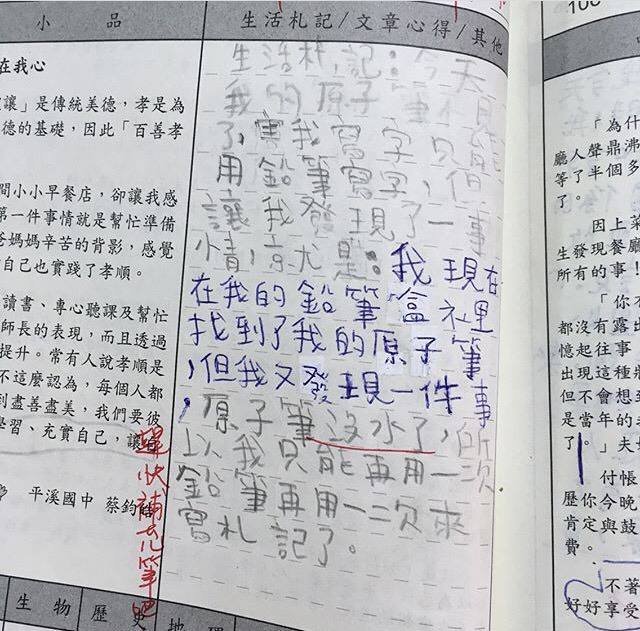 小 品
在我心
讓」是傳統美德，孝是為
德的基礎，因此「百善孝
間小小早餐店，卻讓我感
第一件事情就是幫忙準備
爸媽媽辛苦的背影，感覺
自己也實踐了孝順。
讀書、專心聽課及幫忙
師長的表現，而且透過
提升。常有人說孝順是
不這麼認為，每個人都
到盡善盡美，我們要彼
學習、充實自己，讓
平溪國中 蔡鈞
生活札記/文章心得/其他
生活札記：今天
我的原子筆不見
了，害我寫字，只能
用鉛筆寫字，但
讓我發現了一事
情，就是：我現在
在我的鉛筆盒裡
找到了我的原子筆
，但我又發現一件事
，原子筆沒水了，所
以我只能再用一次
鉛筆再用一次來
寫札記了。
趕快補充筆吧
生 物 歷 史 地 理
「為什
廳人聲鼎沸
等了半個多
了。
因上菜
生發現餐廳
所有的事！
「你
都沒有露出
憶起往事
出現這種
但不會想到
是當年的
了。」夫
付帳
歷你今晚
肯定與鼓
費。
不著
好好享受